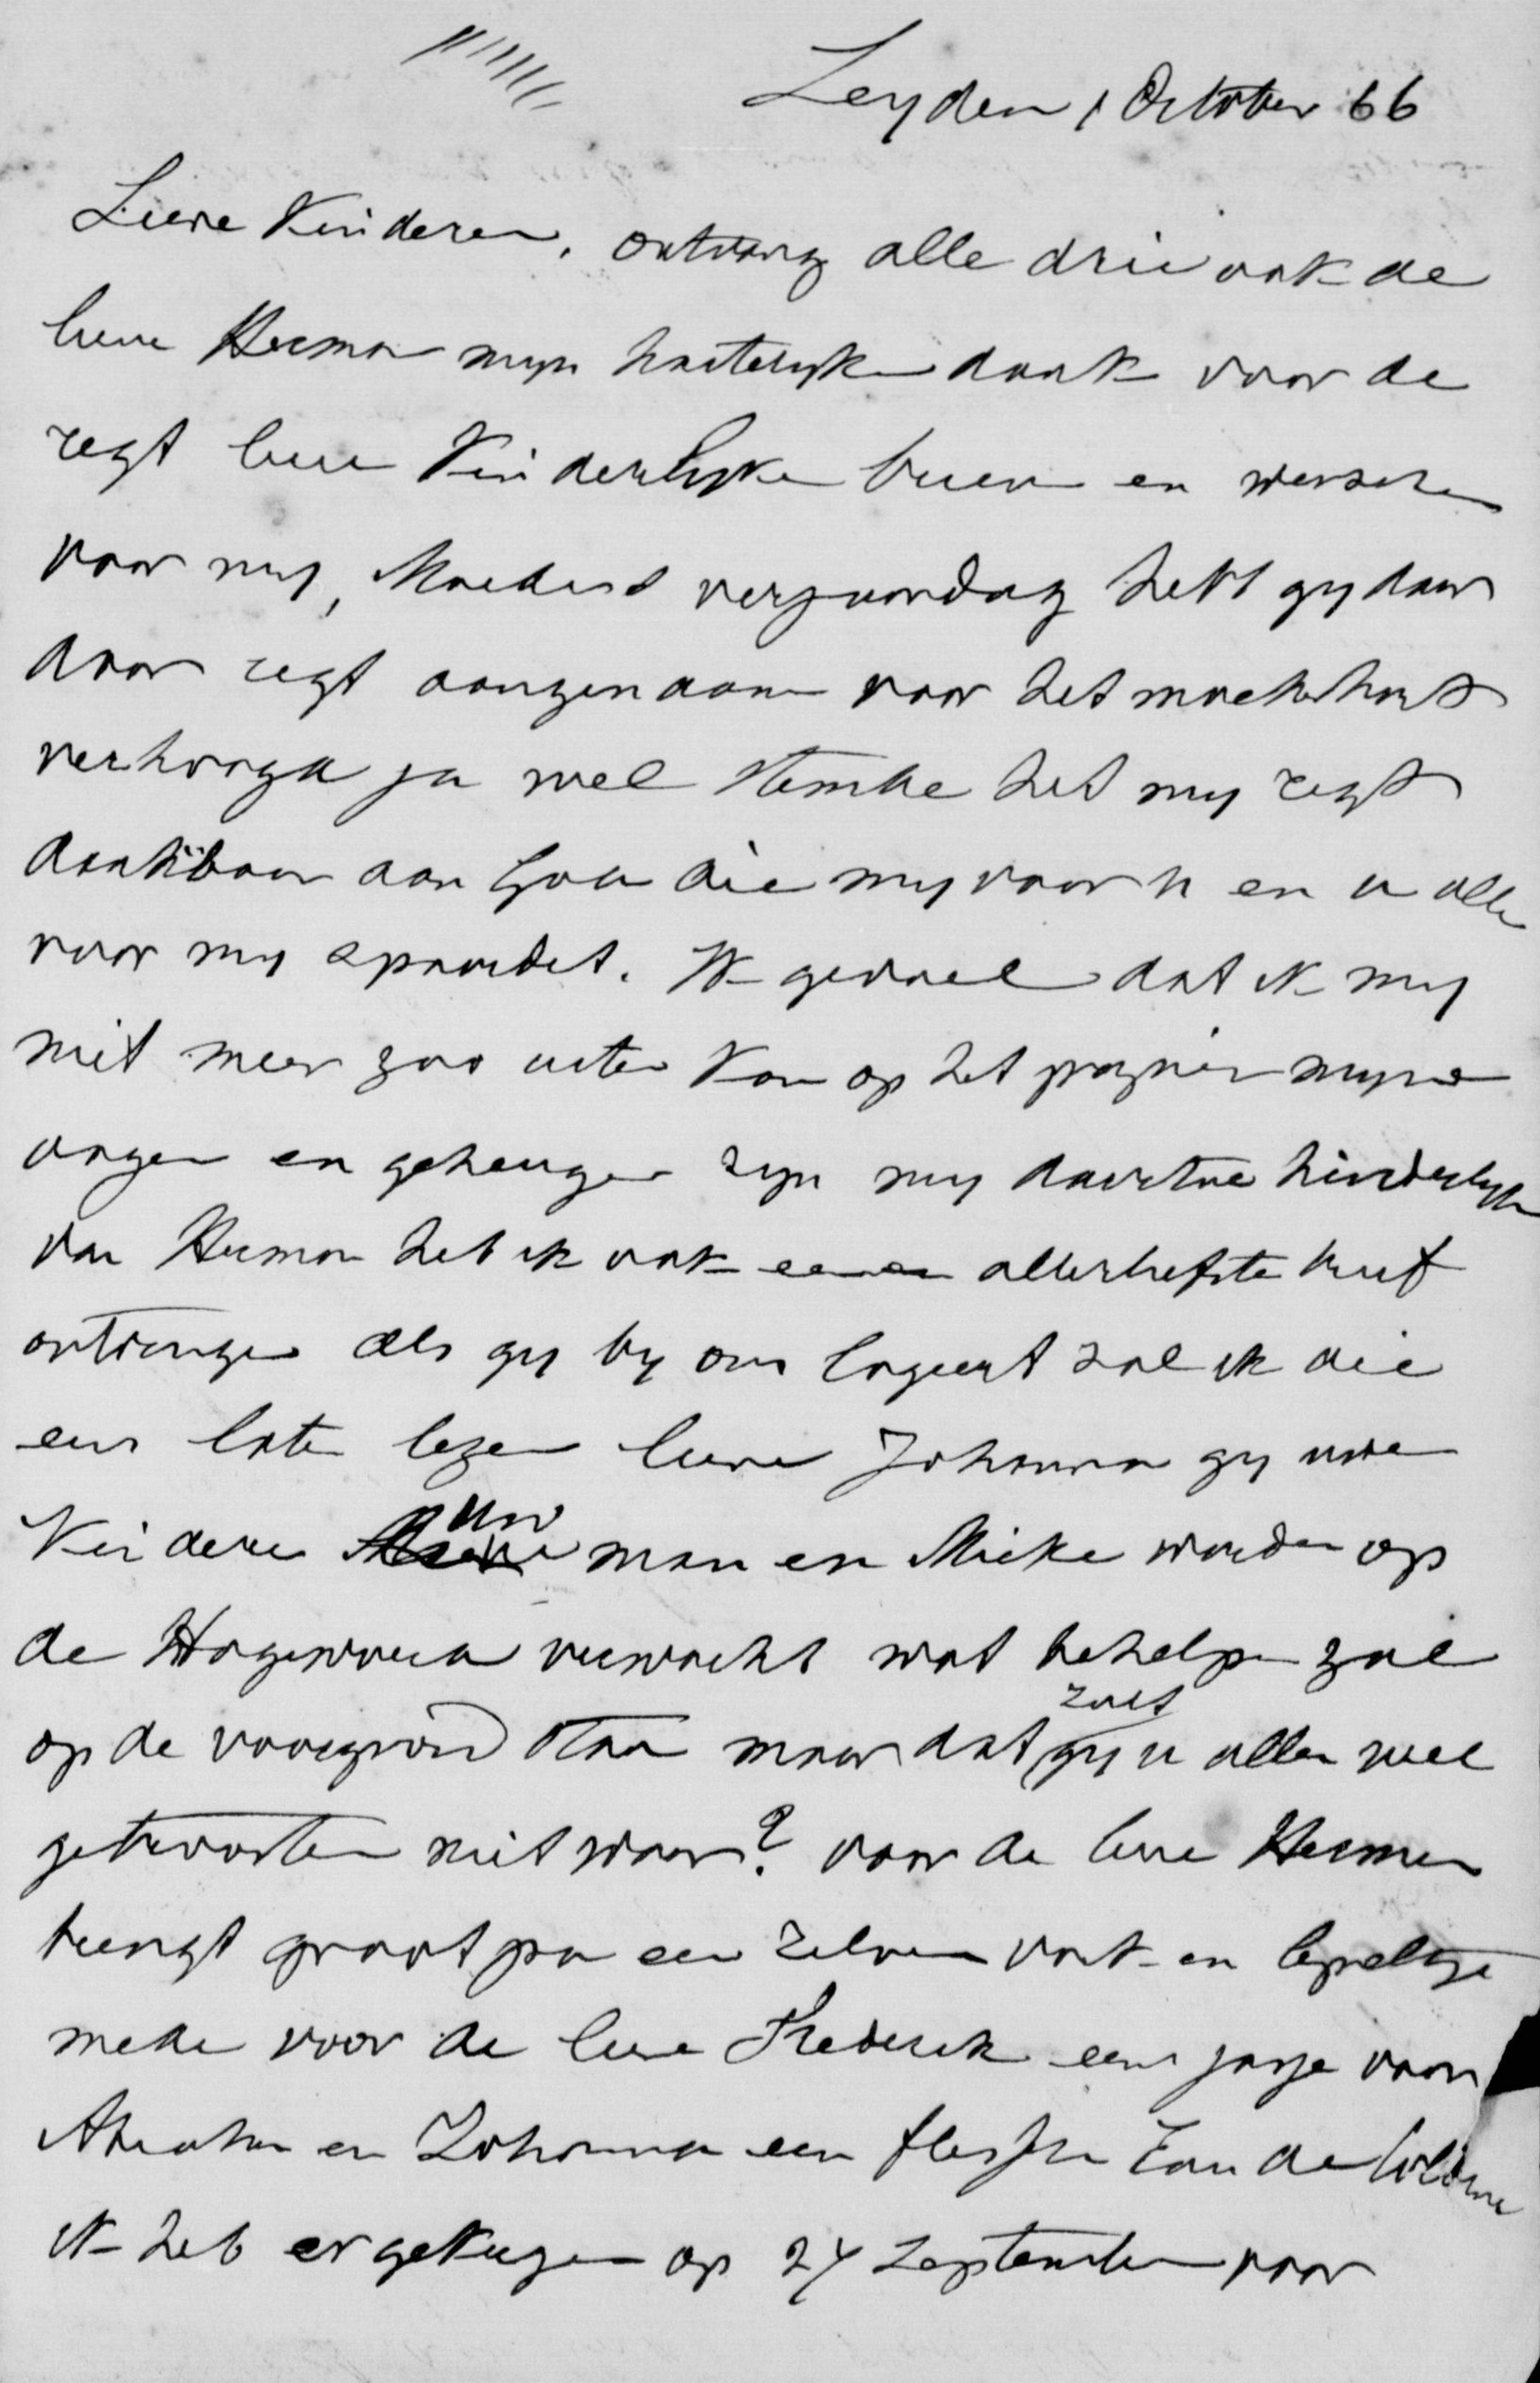 Leyden 1 October 66
Lieve Kinderen, ontvang alle drie ook de
lieve Herman myn hartelyken dank voor de
regt lieve Kinderlyke brieven en wenschen
voor my, Moeders verjaardag hebt gy daar
door regt aangenaam voor het moederhart
verhoogd ja wel stemde het my regt
dankbaar aan God die my voor u en u allen
voor my spaardet. Ik gevoel dat ik my
niet meer zoo uiten kan op het papier myne
oogen en geheugen zyn my daartoe hinderlyk
van Herman heb ik ook eenen allerliefste brief
ontvangen als gy by ons logeert zal ik die
eens laten lezen lieve Johanna gy uwe
Kinderen uw man en Mieke worden op
de Hogewoerd verwacht wat behelpen zal
op de voorgrond staan maar dat zult gy u allen wel
getroosten niet waar? voor de lieve Herman
brengt grootpa een zilveren vork en lepeltje
mede voor de lieve Frederik een jasje voor
Abraham en Johanna een flesje Eau de Cologne
ik heb er gekregen op 24 September voor